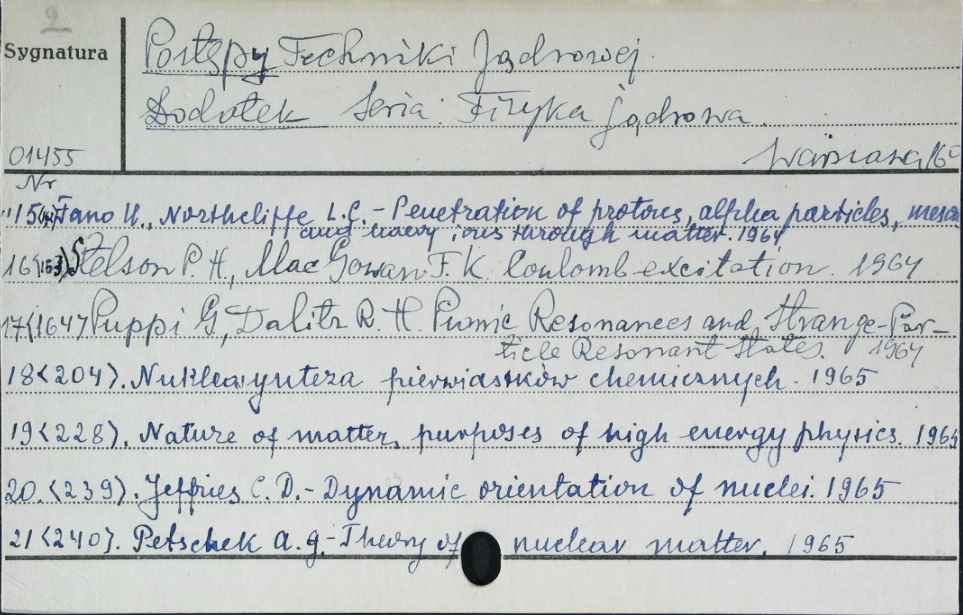 2
Sygnatura
Postępy Techniki Jądrowej.
Dodatek Seria: Fizyka Jądrowa.
01455
Warszawa, 16
Nr
15 Fano U., Northcliffe L.C. - Penetration of protons, alpha particles, meson
and heavy ions through matter. 1964
16<153> Stelson P. H., Mac Gowan F. K. Coulomb excitation. 1964
17<164> Puppi G, Dalitz R. H. Pionic Resonances and Strange-Par-
ticle Resonant States. 1964
18<204>. Nukleosynteza pierwiastków chemicznych. 1965
19<228>. Nature of matter, purposes of high energy physics. 1965
20.<239>. Jeffries C. D. - Dynamic orientation of nuclei. 1965
21<240>. Petschek A. G. - Theory of nuclear matter. 1965